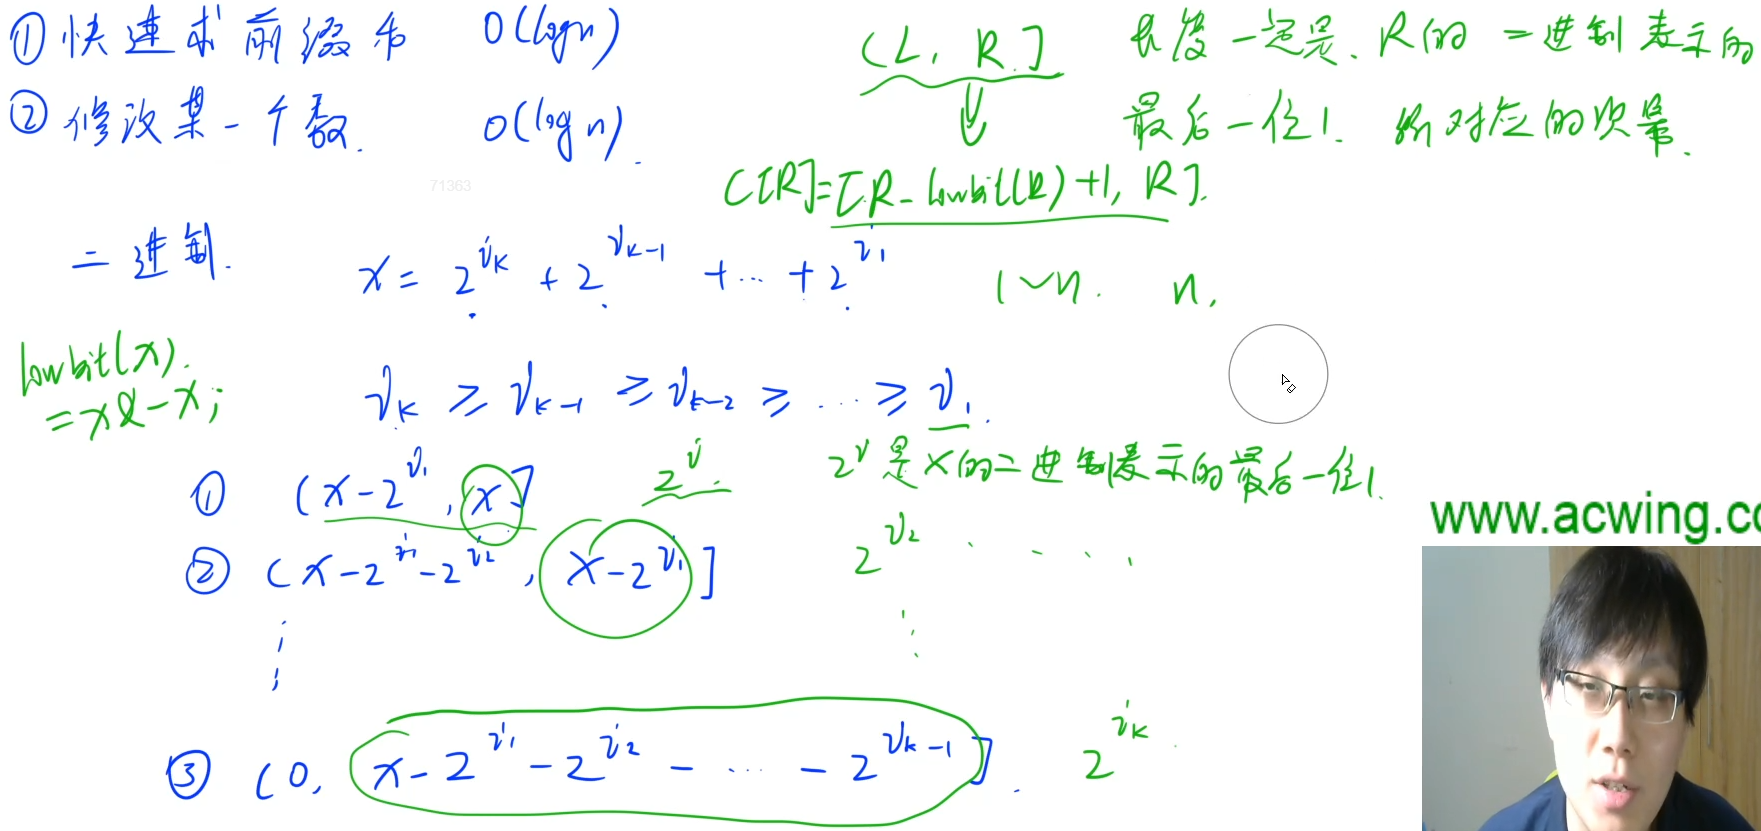 ① 快速求前缀和 O(logn)
② 修改某一个数. O(logn).
(L, R]
长度一定是. R的二进制表示的
最后一位1. 所对应的次幂.
C[R]=[R-lowbit(R)+1, R].
71363
二进制.
x = 2^{i_k} + 2^{i_{k-1}} + ... + 2^{i_1}
1~n. n.
lowbit(x).
=x&-x;
i_k ≥ i_{k-1} ≥ i_{k-2} ≥ ... ≥ i_1.
① (x-2^{i_1}, x]
2^{i}.
2^{i}是x的二进制表示的最后一位1.
② (x-2^{i_1}-2^{i_2}, x-2^{i_1}]
2^{i_2} ....
③ (0, x-2^{i_1}-2^{i_2}-...-2^{i_{k-1}}].
2^{i_k}
www.acwing.co